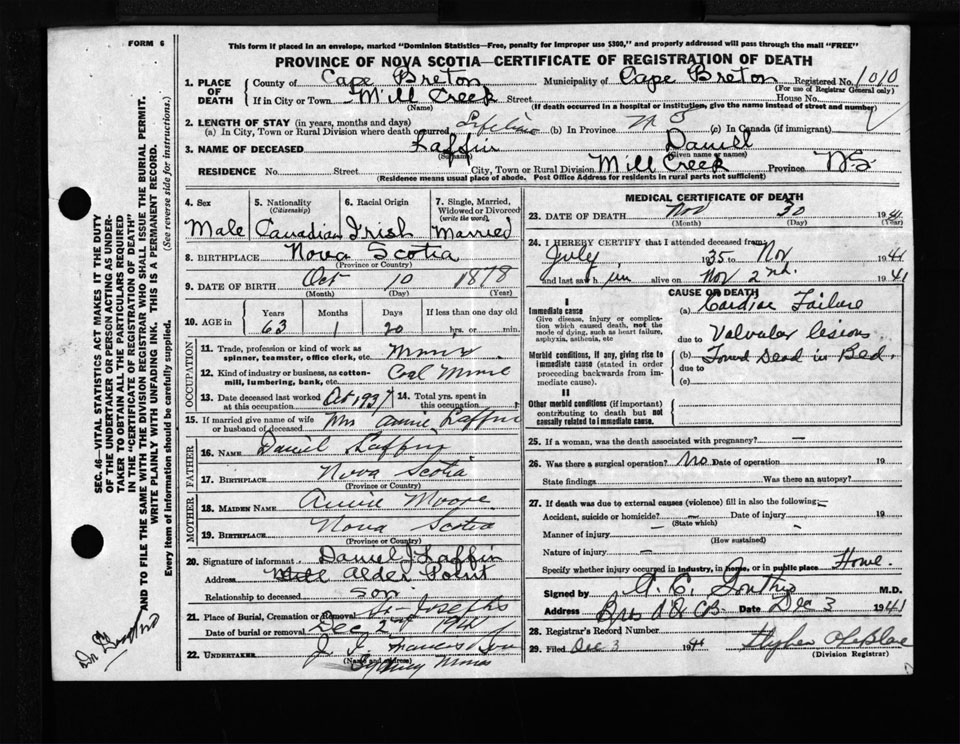 FORM 6
This form if placed in an envelope, marked "Dominion Statistics—Free, penalty for improper use $300," and properly addressed will pass through the mail "FREE"
PROVINCE OF NOVA SCOTIA—CERTIFICATE OF REGISTRATION OF DEATH
1. PLACE OF DEATH County of Cape Breton Municipality of Cape Breton Registered No. 1010
(For use of Registrar General only)
If in City or Town Mill Creek Street House No.
(Name) (If death occurred in a hospital or institution, give the name instead of street and number)
2. LENGTH OF STAY (in years, months and days)
(a) In City, Town or Rural Division where death occurred Lifetime (b) In Province N S (c) In Canada (if immigrant)
3. NAME OF DECEASED Laffin Daniel
(Surname) (Given name or names)
RESIDENCE No. Street City, Town or Rural Division Mill Creek Province NS
(Residence means usual place of abode. Post Office Address for residents in rural parts not sufficient)
4. Sex 5. Nationality (Citizenship) 6. Racial Origin 7. Single, Married, Widowed or Divorced (write the word)
Male Canadian Irish Married
8. BIRTHPLACE Nova Scotia
(Province or Country)
9. DATE OF BIRTH Oct 10 1878
(Month) (Day) (Year)
10. AGE in Years Months Days If less than one day old
63 1 20 hrs. or min.
OCCUPATION
11. Trade, profession or kind of work as spinner, teamster, office clerk, etc. Miner
12. Kind of industry or business, as cotton-mill, lumbering, bank, etc. Coal Mine
13. Date deceased last worked at this occupation Oct 1937 14. Total yrs. spent in this occupation
15. If married give name of wife or husband of deceased Mrs Annie Laffin
FATHER
16. NAME Daniel Laffin
17. BIRTHPLACE Nova Scotia
MOTHER
18. MAIDEN NAME Annie Moore
19. BIRTHPLACE Nova Scotia
(Province or Country)
20. Signature of informant Daniel J Laffin
Address Alder Point
Relationship to deceased Son
21. Place of Burial, Cremation or Removal St Josephs
Date of burial or removal Dec 2nd 1941
22. UNDERTAKER J. J. Francis
(Name and address) Sydney Mines
MEDICAL CERTIFICATE OF DEATH
23. DATE OF DEATH Nov 30 1941
(Month) (Day)
24. I HEREBY CERTIFY that I attended deceased from
July 1935 to Nov 1941
and last saw him alive on Nov 2nd. 1941
CAUSE OF DEATH
I
Immediate cause
Give disease, injury or complication which caused death, not the mode of dying, such as heart failure, asphyxia, asthenia, etc
(a) Cardiac Failure
due to Valvular lesions
Morbid conditions, if any, giving rise to immediate cause (stated in order proceeding backwards from immediate cause).
(b) Found Dead in Bed.
due to
(c)
II
Other morbid conditions (if important) contributing to death but not causally related to immediate cause.
25. If a woman, was the death associated with pregnancy? —
26. Was there a surgical operation? No Date of operation 19
State findings Was there an autopsy?
27. If death was due to external causes (violence) fill in also the following:—
Accident, suicide or homicide? — Date of injury 19
(State which)
Manner of injury —
(How sustained)
Nature of injury —
Specify whether injury occurred in industry, in home, or in public place Home.
Signed by M.D.
Address Date Dec 3 1941
28. Registrar's Record Number
29. Filed Dec 3 1941
(Division Registrar)
SEC. 46—VITAL STATISTICS ACT MAKES IT THE DUTY
OF THE UNDERTAKER OR PERSON ACTING AS UNDER-
TAKER TO OBTAIN ALL THE PARTICULARS REQUIRED
IN THE "CERTIFICATE OF REGISTRATION OF DEATH"
AND TO FILE THE SAME WITH THE DIVISION REGISTRAR WHO SHALL ISSUE THE BURIAL PERMIT.
WRITE PLAINLY WITH UNFADING INK. THIS IS A PERMANENT RECORD.
Every item of information should be carefully supplied. (See reverse side for instructions.)